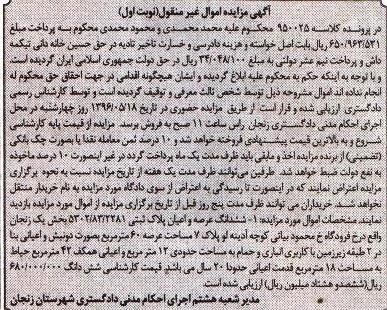 آگهی مزایده اموال غیر منقول(نوبت اول)
در پرونده کلاسه ۹۵۰۰۲۵ محکوم علیه محمد محمدی و محمود محمدی محکوم به پرداخت مبلغ
۶۵۰/۹۶۳/۵۳۱ ریال بابت اصل خواسته و هزینه دادرسی و خسارت تاخیر تادیه در حق حسین خانه دائی تیکمه
داش و پرداخت نیم عشر دولتی به مبلغ ۳۴/۰۴۸/۱۰۰ ریال در حق دولت جمهوری اسلامی ایران گردیده است.
و با توجه به اینکه حکم به محکوم علیه ابلاغ گردیده و ایشان هیچگونه اقدامی در جهت احقاق حق محکوم له
انجام نداده اند اموال مشروحه ذیل توسط شخص ثالث معرفی و توقیف گردیده است و توسط کارشناس رسمی
دادگستری ارزیابی شده و قرار است از طریق مزایده حضوری در تاریخ ۱۳۹۶/۰۵/۱۸ روز چهارشنبه در محل
اجرای احکام مدنی دادگستری زنجان راس ساعت ۱۱ صبح به فروش برسد. مزایده از قیمت پایه کارشناسی
شروع و به بالاترین قیمت پیشنهادی فروخته خواهد شد و ۱۰ درصد ثمن معامله نقدا یا بصورت چک بانکی
(تضمینی) از برنده مزایده اخذ و مابقی باید ظرف مدت یک ماه پرداخت گردد در غیر اینصورت ۱۰ درصد ماخوذه
به نفع دولت ضبط خواهد شد. طرفین می توانند ظرف مدت یک هفته از تاریخ مزایده نسبت به نحوه برگزاری
مزایده اعتراض نمایند که در اینصورت تا رسیدگی به اعتراض از سوی دادگاه مورد مزایده به نام خریدار منتقل
نخواهد شد. خریداران می توانند ظرف مدت پنج روز قبل از تاریخ برگزاری مزایده از اموال مورد مزایده بازدید
نمایند. مشخصات اموال مورد مزایده: ۱- ششدانگ عرصه و اعیان پلاک ثبتی ۵۳۰۲/۸۳/۲۲۸۱ بخش یک زنجان
واقع در خ فرودگاه خ محمود بیانی کوچه آدینه لو پلاک ۷ مساحت عرصه ۶۰ مترمربع بصورت دونبش و اعیانی بنا
در ۲ طبقه زیرزمین با کاربری انباری و حمام به مساحت حدودی ۱۲ متر مربع و اعیانی همکف ۴۲ مترمربع حیاط
به مساحت ۱۸ مترمربع قدمت اعیانی حدودا ۲۰ سال می باشد. قیمت کارشناسی شش دانگ ۶۸۰/۰۰۰/۰۰۰
ریال(ششصدو هشتاد میلیون ریال) ارزیابی شده است.
مدیر شعبه هشتم اجرای احکام مدنی دادگستری شهرستان زنجان